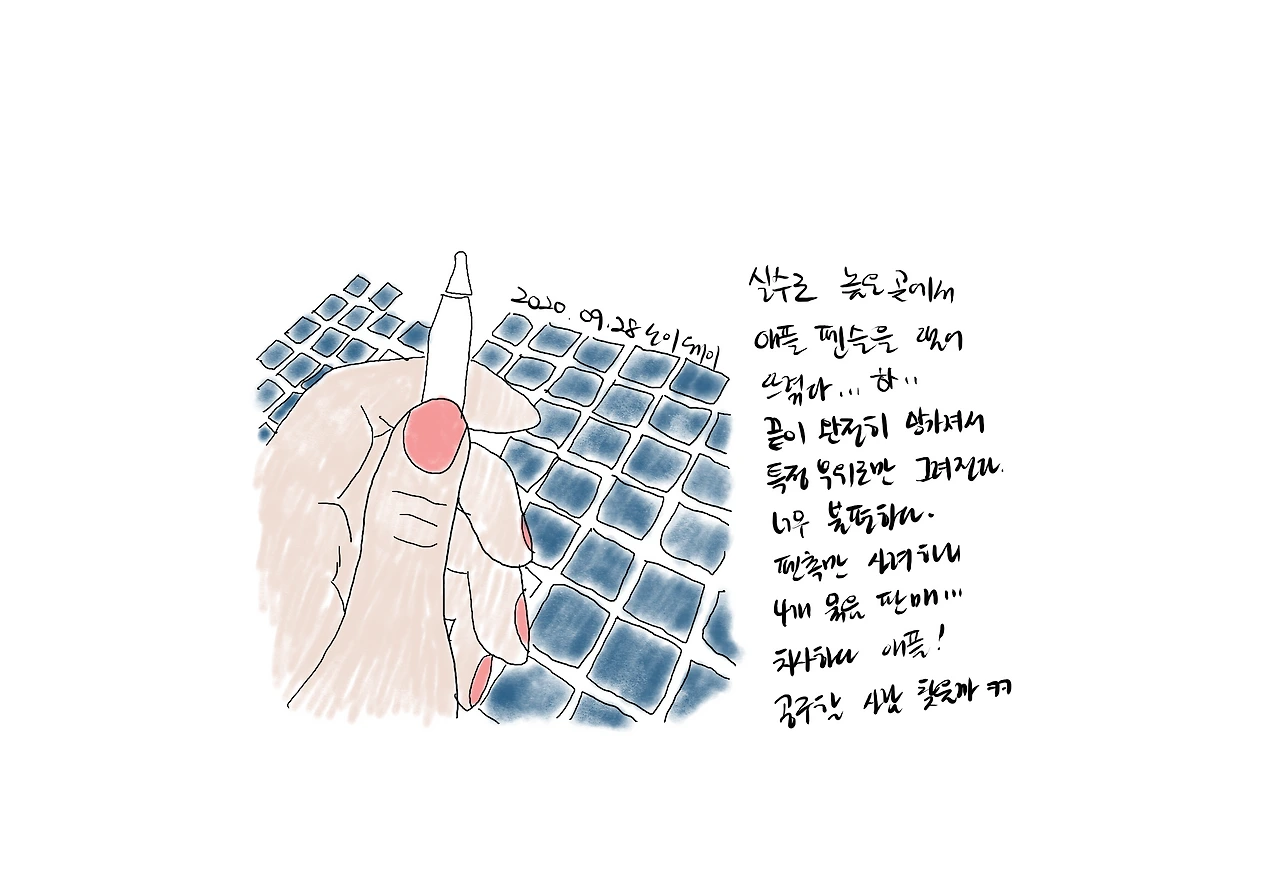 2020.09.28 노이데이
실수로 높은 곳에서
애플 펜슬을 떨어
뜨렸다... 하..
끝이 완전히 망가져서
특정 부위로만 그려진다.
너무 불편하다.
펜촉만 사려하니
4개 묶음 판매...
치사하다 애플!
공구할 사람 찾을까 ㅋㅋ